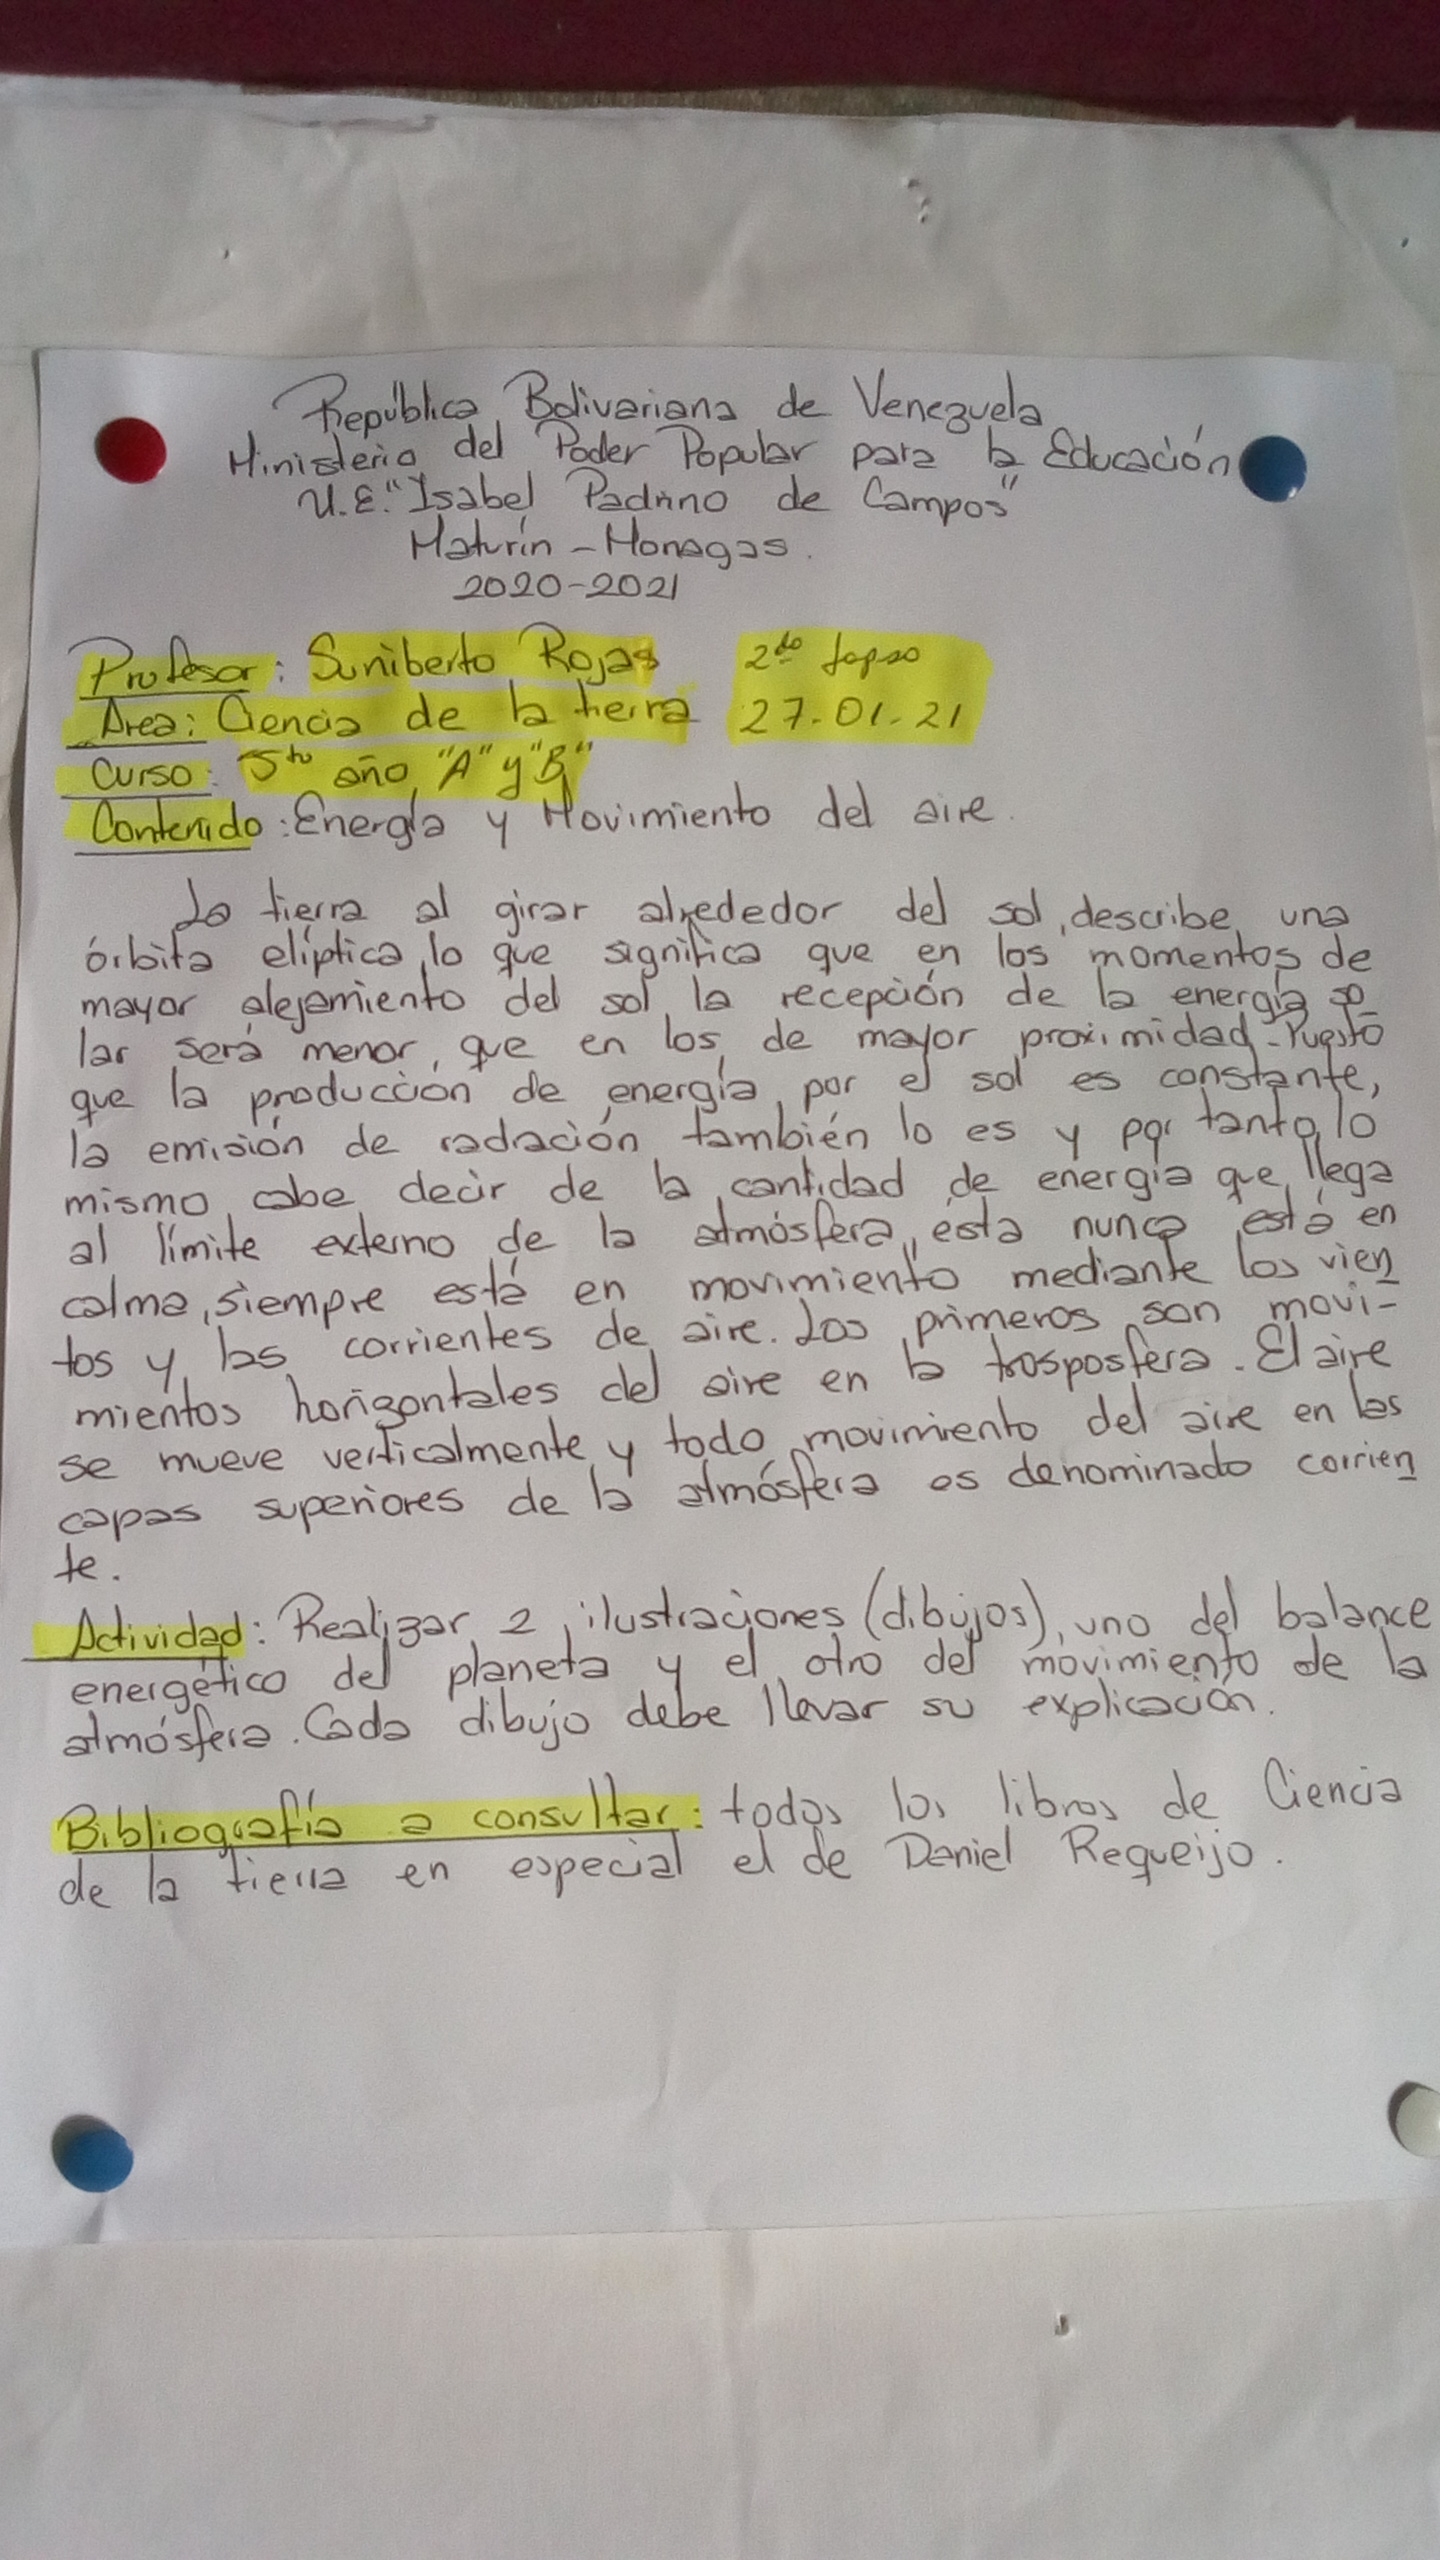 República Bolivariana de Venezuela
Ministerio del Poder Popular para la Educación
U.E. "Isabel Padrino de Campos"
Maturín - Monagas.
2020-2021
Profesor: Suniberto Rojas 2do lapso
Area: Ciencia de la tierra 27-01-21
Curso: 5to año "A" y "B"
Contenido: Energía y Movimiento del aire.
La tierra al girar alrededor del sol, describe una
órbita elíptica, lo que significa que en los momentos de
mayor alejamiento del sol, la recepción de la energía so
lar será menor, que en los de mayor proximidad. Puesto
que la producción de energía por el sol es constante,
la emisión de radiación también lo es y por tanto, lo
mismo cabe decir de la cantidad de energía que llega
al límite externo de la atmósfera, ésta nunca está en
calma, siempre está en movimiento mediante los vien
tos y las corrientes de aire. Los primeros son movi-
mientos horizontales del aire en la trosposfera. El aire
se mueve verticalmente y todo movimiento del aire en las
capas superiores de la atmósfera es denominado corrien
te.
Actividad: Realizar 2 ilustraciones (dibujos), uno del balance
energético del planeta y el otro del movimiento de la
atmósfera. Cada dibujo debe llevar su explicación.
Bibliografía a consultar: todos los libros de Ciencia
de la tierra en especial el de Daniel Requeijo.